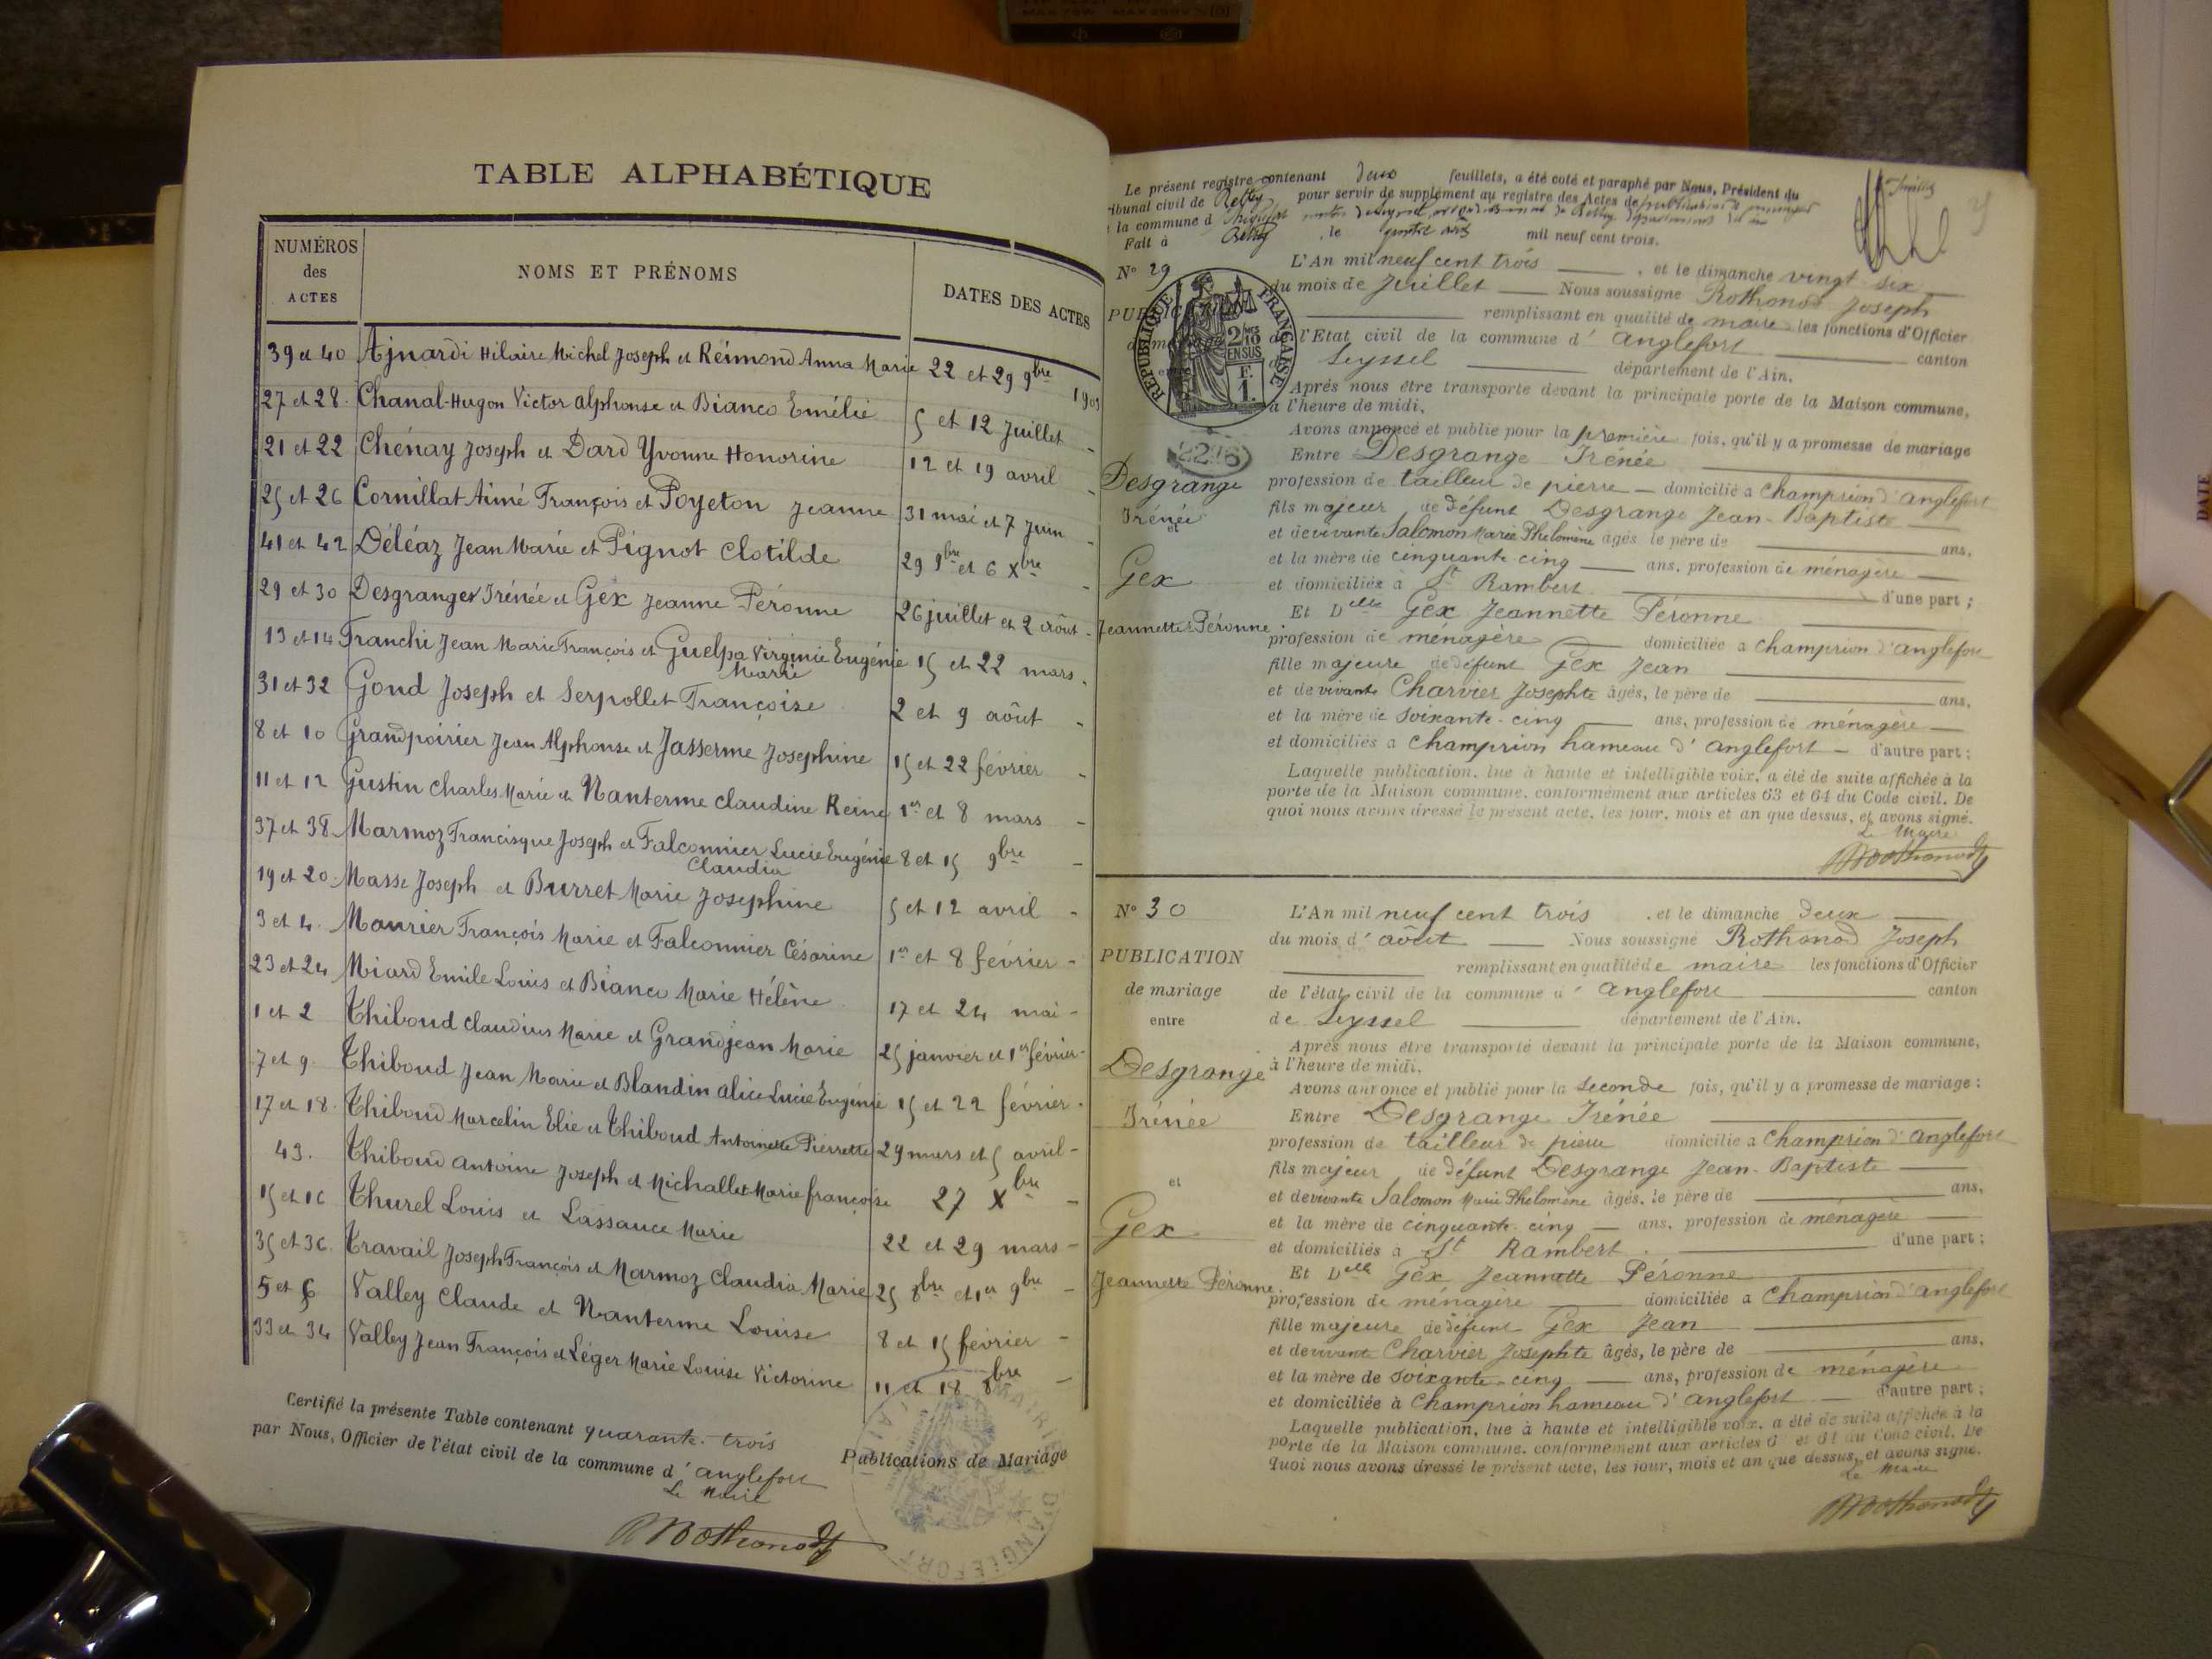 TABLE ALPHABÉTIQUE
NUMÉROS des ACTES
NOMS ET PRÉNOMS
DATES DES ACTES
39 et 40 Ajnardi Hilaire Michel Joseph et Reimond Anna Marie 22 et 29 9bre 1903
27 et 28. Chanal-Hugon Victor Alphonse et Bianco Emélie 5 et 12 Juillet -
21 et 22 Chénay Joseph et Dard Yvonne Honorine 12 et 19 avril -
25 et 26 Cornillat Aimé François et Poyeton Jeanne 31 mai et 7 Juin -
41 et 42 Déléaz Jean Marie et Pignot Clotilde 29 9bre et 6 Xbre -
29 et 30 Desgranges Irénée et Gex Jeanne Péronne 26 juillet et 2 août -
13 et 14 Franchi Jean Marie François et Guelpa Virginie Eugénie Marie 15 et 22 mars -
31 et 32 Gond Joseph et Serpollet Françoise 2 et 9 août -
8 et 10 Grandpoirier Jean Alphonse et Jasserme Josephine 15 et 22 février -
11 et 12 Gustin Charles Marie et Nanterme Claudine Reine 1er et 8 mars -
37 et 38. Marmoz Francisque Joseph et Falconnier Lucie Eugénie Claudia 8 et 15 9bre -
19 et 20. Masse Joseph et Burret Marie Josephine 5 et 12 avril -
3 et 4. Maurier François Marie et Falconnier Césarine 1er et 8 février -
23 et 24 Miard Emile Louis et Bianco Marie Hélène 17 et 24 mai -
1 et 2 Thiboud Claudius Marie et Grandjean Marie 25 janvier et 1er février -
7 et 9. Thiboud Jean Marie et Blandin Alice Lucie Eugénie 15 et 22 février -
17 et 18. Thiboud Marcelin Elie et Thiboud Antoinette Pierrette 29 mars et 5 avril -
43. Thiboud Antoine Joseph et Michallet Marie françoise 27 Xbre -
15 et 16 Thurel Louis et Lassauce Marie 22 et 29 mars -
35 et 36. Travail Joseph François et Marmoz Claudia Marie 25 8bre et 1er 9bre -
5 et 6 Valley Claude et Nanterme Louise 8 et 15 février -
33 et 34 Valley Jean François et Léger Marie Louise Victorine 11 et 18 8bre -
Certifié la présente Table contenant quarante-trois Publications de Mariage
par Nous, Officier de l'état civil de la commune d'anglefort
Le Maire
Rothonod
MAIRIE D'ANGLEFORT (AIN)
Le présent registre contenant deux feuillets, a été coté et paraphé par Nous, Président du
tribunal civil de Belley pour servir de supplément au registre des Actes de publications de mariages
la commune d'
Fait à Belley, le mil neuf cent trois.
N° 29
PUBLICATION
de mariage
entre
RÉPUBLIQUE FRANÇAISE
2/10 EN SUS
F. 1.
2296
Desgrange
Irénée
et
Gex
Jeannette Péronne.
L'An mil neuf cent trois, et le dimanche vingt-six
du mois de Juillet Nous soussigné Rothonod Joseph
remplissant en qualité de maire les fonctions d'Officier
de l'Etat civil de la commune d'anglefort canton
de Seyssel département de l'Ain.
Après nous être transporté devant la principale porte de la Maison commune,
à l'heure de midi,
Avons annoncé et publié pour la première fois, qu'il y a promesse de mariage
Entre Desgrange Irénée
profession de tailleur de pierre domicilié à Champrion d'anglefort
fils majeur de défunt Desgrange Jean-Baptiste
et de vivante Salomon Marie Phélomène âgés, le père de ans,
et la mère de cinquante-cinq ans, profession de ménagère
et domiciliés à St Rambert d'une part ;
Et Delle Gex Jeannette Péronne
profession de ménagère domiciliée à Champrion d'anglefort
fille majeure de défunt Gex Jean
et de vivante Charvier Josephte âgés, le père de ans,
et la mère de soixante-cinq ans, profession de ménagère
et domiciliés à Champrion hameau d'anglefort d'autre part :
Laquelle publication, lue à haute et intelligible voix, a été de suite affichée à la
porte de la Maison commune, conformément aux articles 63 et 64 du Code civil. De
quoi nous avons dressé le présent acte, les jour, mois et an que dessus, et avons signé.
Le Maire
Rothonod
N° 30
PUBLICATION
de mariage
entre
Desgrange
Irénée
et
Gex
Jeannette Péronne.
L'An mil neuf cent trois, et le dimanche deux
du mois d'août Nous soussigné Rothonod Joseph
remplissant en qualité de maire les fonctions d'Officier
de l'état civil de la commune d'anglefort canton
de Seyssel département de l'Ain.
Après nous être transporté devant la principale porte de la Maison commune,
à l'heure de midi,
Avons annoncé et publié pour la seconde fois, qu'il y a promesse de mariage :
Entre Desgrange Irénée
profession de tailleur de pierre domicilié à Champrion d'anglefort
fils majeur de défunt Desgrange Jean-Baptiste
et de vivante Salomon Marie Phelomène âgés, le père de ans,
et la mère de cinquante-cinq ans, profession de ménagère
et domiciliés à St Rambert d'une part :
Et Delle Gex Jeannette Péronne
profession de ménagère domiciliée à Champrion d'anglefort
fille majeure de défunt Gex Jean
et de vivante Charvier Josephte âgés, le père de ans,
et la mère de soixante-cinq ans, profession de ménagère
et domiciliée à Champrion hameau d'anglefort d'autre part ;
Laquelle publication, lue à haute et intelligible voix, a été de suite affichée à la
porte de la Maison commune, conformément aux articles 63 et 64 du Code civil. De
quoi nous avons dressé le présent acte, les jour, mois et an que dessus, et avons signé.
Le Maire
Rothonod
DATE